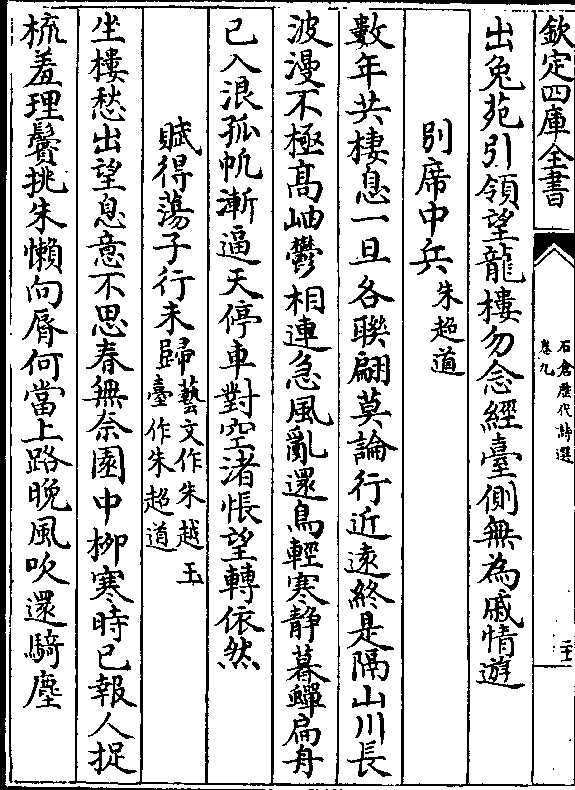 欽定四庫全書
石倉歴代詩選
卷九
出兔苑引領望龍樓勿念經臺側無為戚情遊
別席中兵朱超道
數年共棲息一旦各聯翩莫論行近逺終是隔山川長
波漫不極髙岫鬱相連急風亂還鳥輕寒静暮蟬扁舟
已入浪孤帆漸逼天停車對空渚悵望轉依然
賦得蕩子行未歸藝文作朱越玉
臺作朱超道
坐樓愁出望息意不思春無奈園中柳寒時已報人捉
梳羞理鬢挑朱懶向脣何當上路晚風吹還騎塵